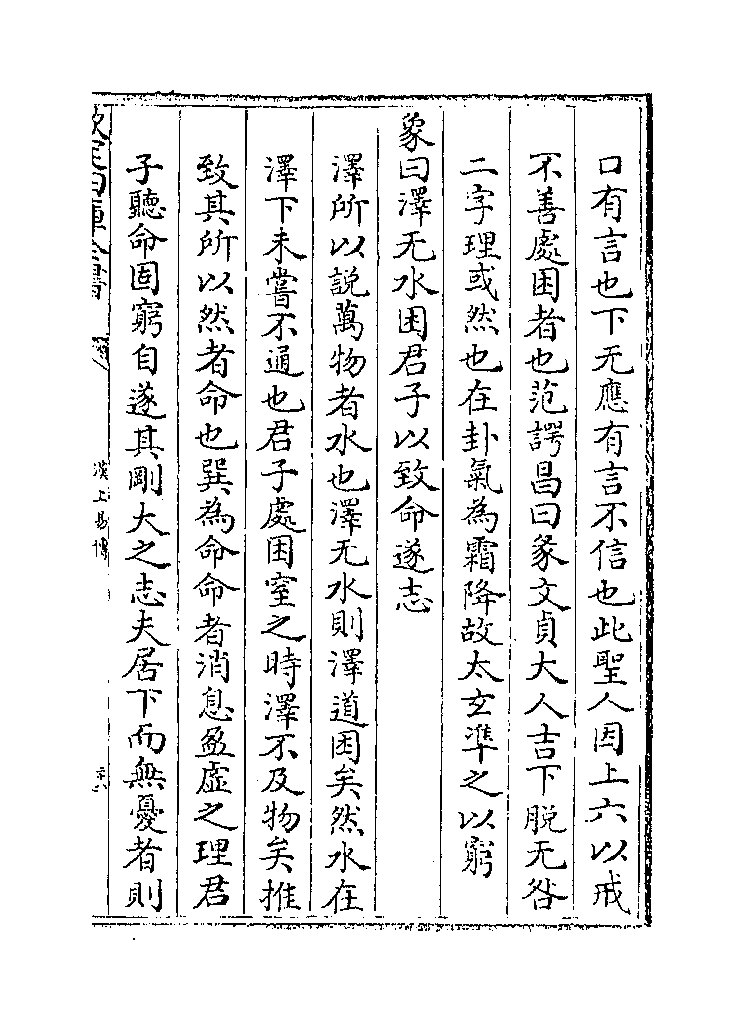 口有言也下无應有言不信也此聖人因上六以戒
不善處困者也范諤昌曰彖文貞大人吉下脱无咎
二字理或然也在卦氣為霜降故太玄準之以窮
象曰澤无水困君子以致命遂志
澤所以説萬物者水也澤无水則澤道困矣然水在
澤下未嘗不通也君子處困窒之時澤不及物矣推
致其所以然者命也巽為命命者消息盈虚之理君
子聽命固窮自遂其剛大之志夫居下而無憂者則
欽定四庫全書
漢上易傳